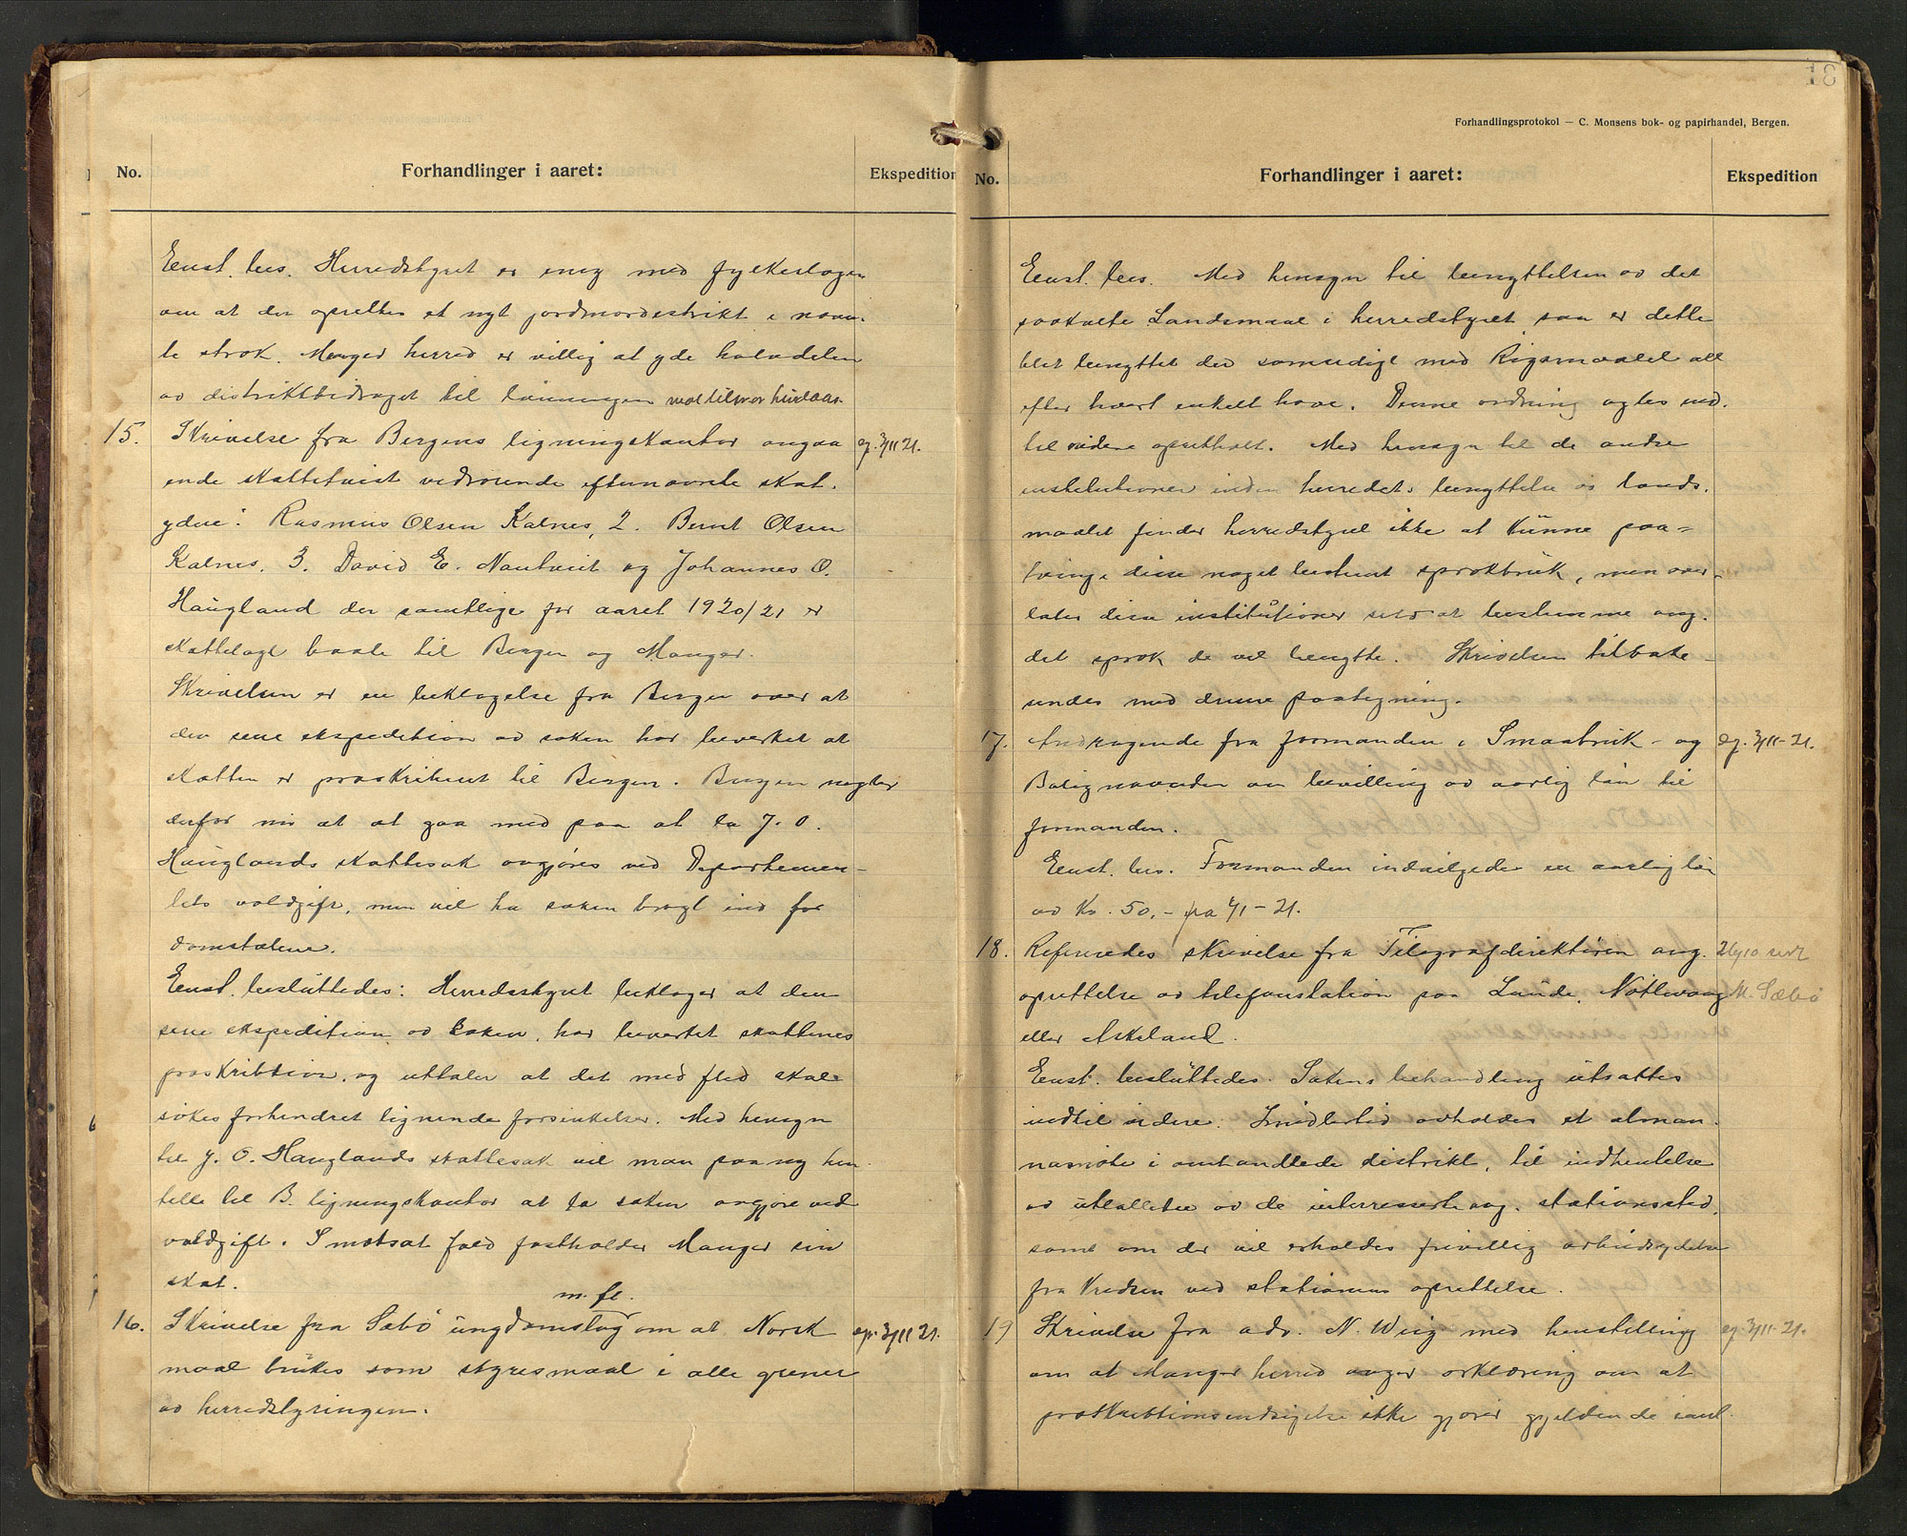 No.
Forhandlinger i aaret:
Ekspedition
Enst. bes. Herredstyret er enig med fylkeslægen
om at der oprettes et nyt jordmordistrikt i nævn-
te strøk. Manger herred er villig at yde halvdelen
av distriktbidraget til lønningen
15. Skrivelse fra Bergens ligningskontor angaa
ende skattetvist vedrørende efternævnte skat-
ydere: Rasmus Olsen Kalnes, 2. Bernt Olsen
Kalnes. 3. David E. Nautveit og Johannes O.
Haugland der samtlige for aaret 1920/21 er
skattelagt baade til Bergen og Manger.
Skrivelsen er en beklagelse fra Bergen over at
den sene ekspedition av saken har bevirket at
skatten er præskribert til Bergen. Bergen negter
derfor nu at at gaa med paa at la J. O.
Hauglands skattesak avgjøres ved Departemen-
tets voldgift, men vil ha saken bragt ind for
domstolene.
Enst. besluttedes: Herredsstyret beklager at den
sene ekspedition av saken, har bevirket skattenes
præskribtion, og uttaler at det med flid skal
søkes forhindret lignende forsinkelser. Med hensyn
til J. O. Hauglands skattesak vil man paany hen-
stille til B. ligningskontor at la saken avgjøre ved
voldgift. I motsat fald fastholder Manger sin
skat.
ex. 3/11 21.
16. Skrivelse fra Sæbø ungdomslag m. fl. om at Norsk
maal brukes som styresmaal i alle grener
av herredstyringen.
ex. 3/11 21.
18
Forhandlingsprotokol — C. Monsens bok- og papirhandel, Bergen.
No.
Forhandlinger i aaret:
Ekspedition
Enst. bes. Med hensyn til benyttelsen av det
saakalte Landsmaal i herredstyret saa er dette
blit benyttet der samtidigt med Rigsmaalet alt
efter hvert enkelt høve. Denne ordning agtes ind-
til videre oprettholt. Med hensyn til de andre
institutioner inden herredets benyttelse av lands-
maalet finder herredstyret ikke at kunne paa-
tvinge disse noget bestemt sprokbruk, men over-
later disse institutioner selv at bestemme ang.
det sprok de vil benytte. Skrivelsen tilbake-
sendes med denne paategning.
17. Andragende fra formanden i Smaabruk- og
Bolignævnden om bevilling av aarlig løn til
formanden.
Enst. bes. Formanden indvilgedes en aarlig løn
av Kr. 50,- fra 1/1-21.
ex. 3/11-21.
18. Refereredes skrivelse fra Telegrafdirektøren ang.
oprettelse av telefonstation paa Lunde, Nøtlevaag
eller Askeland.
Enst. besluttedes. Sakens behandling utsættes
indtil videre. Imidlertid avholdes et alman-
namøte i omhandlede distrikt, til indhentelse
av uttalelser av de interesserte ang. stationssted,
samt om der vil erholdes frivillig arbeidsydelse
fra kredsen ved stationens oprettelse.
M. Sæbø
19 Skrivelse fra adv. N. Wiig med henstilling
om at Manger herred avger erklæring om at
præskribtionsindsigelse ikke gjøres gjeldende i anl.
ex. 3/11-21.